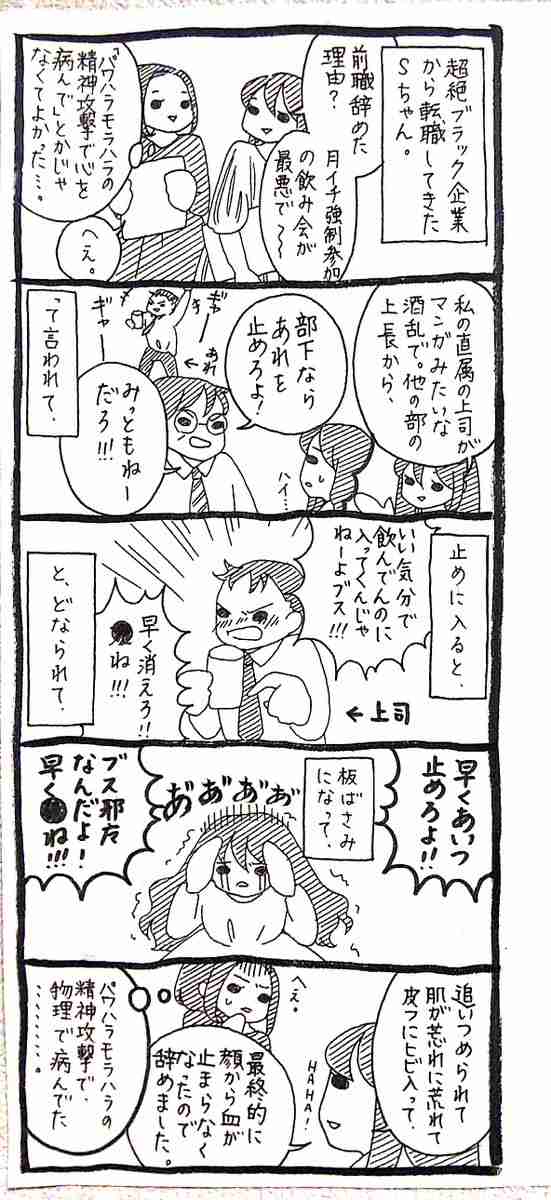 超絶ブラック企業
から転職してきた
Sちゃん。
前職辞めた
理由?
月イチ強制参加
の飲み会が
最悪で〜
「パワハラモラハラの
精神攻撃で心を
病んで」とかじゃ
なくてよかった…。
へえ。
私の直属の上司が
マンガみたいな
酒乱で。他の部の
上長から、
部下なら
あれを
止めろよ!
ハイ…
ギャー
ギャー
←あれ
みっともねー
だろ!!!
って言われて、
止めに入ると、
いい気分で
飲んでんのに
入ってくんじゃ
ねーよブス!!!
←上司
早く消えろ!!
●ね!!!
と、どなられて、
早くあいつ
止めろよ!!
板ばさみ
になって、
あ゛あ゛あ゛あ゛
ブス邪魔
なんだよ!
早く●ね!!!
追いつめられて
肌が荒れに荒れて
皮フにヒビ入って、
HAHA!
へえ。
最終的に
顔から血が
止まらなく
なったので
辞めました。
パワハラモラハラの
精神攻撃で、
物理で病んでた
………。